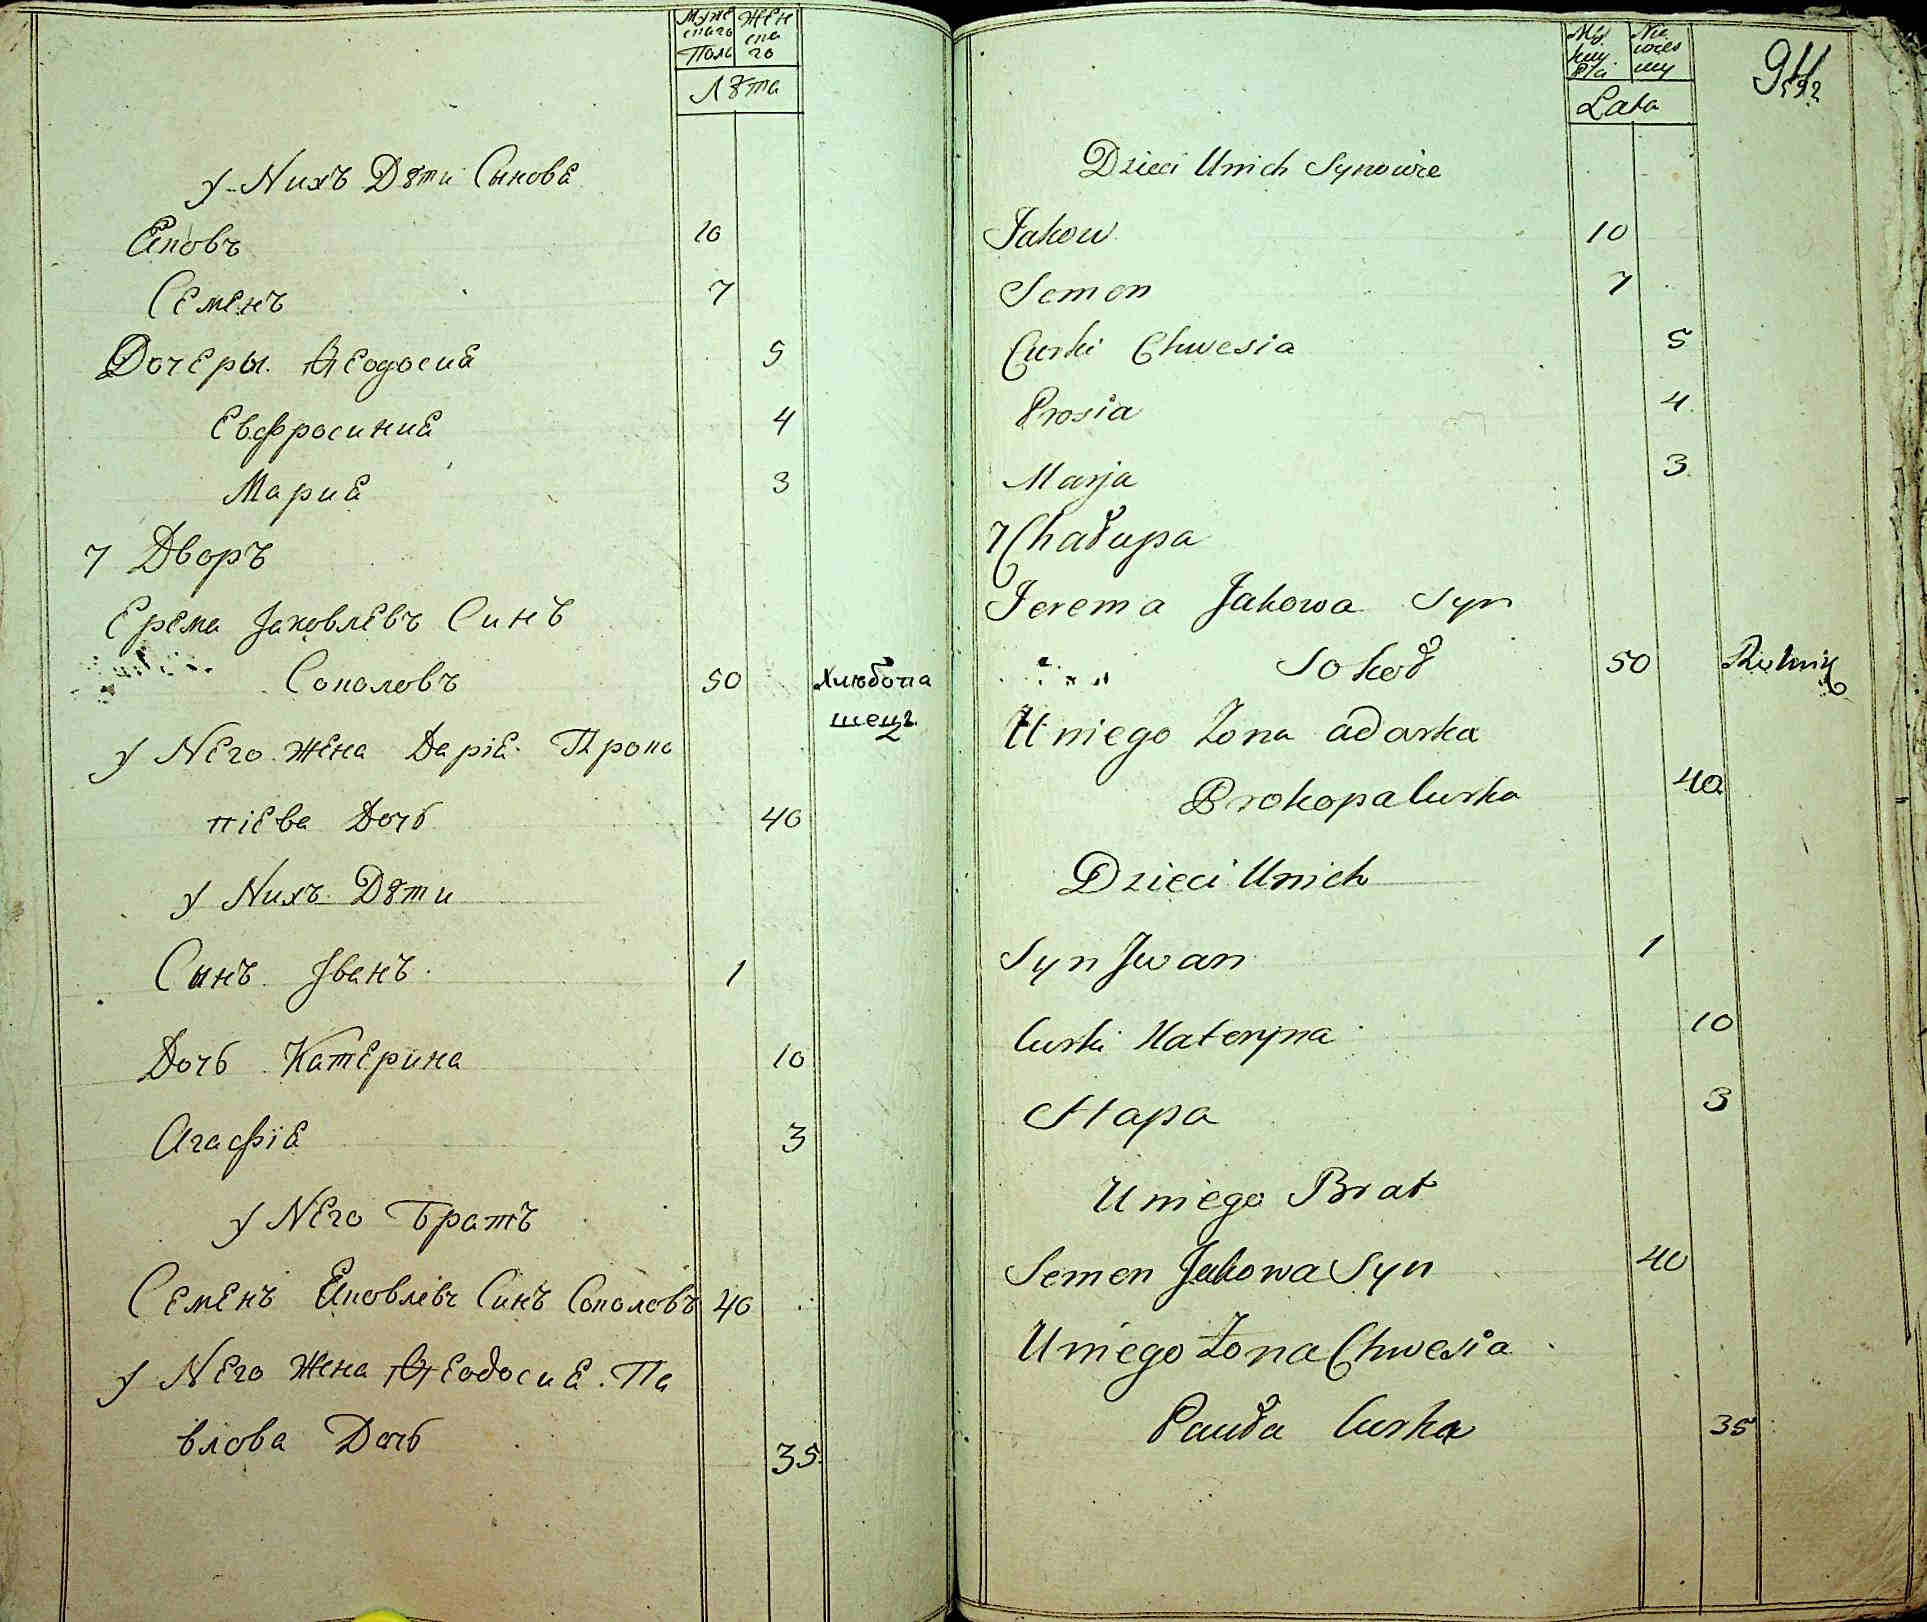 Муже Жен
скаго ска
Полы го
Лѣта
У Nихъ Дѣти Сыновѣ
Яковъ 10
Семенъ 7
Дочеры Ѳеодосия 5
Евфросиния 4
Мария 3
7 Дворъ
Ерема Jаковлевъ Синъ
Соколовъ 50 Хлѣбопа
шецъ
У Nего Жена Дарія Проко
піева Дочь 40
У Nихъ Дѣти
Сынъ Jванъ 1
Дочь Катерина 10
Агафія 3
У Nего Братъ
Семенъ Яковлевъ Синъ Соколовъ 40
У Nего Жена Ѳеодосия Па
влова Дочь 35
Lata
Dzieci Unich Synowie
Jakow 10
Semen 7
Curki Chwesia 5
Prosia 4
Marja 3
7 Chałupa
Jerema Jakowa Syn
Sokoł 50 Rolnik
Uniego Żona Odarka
Prokopa Curka 40
Dzieci Unich
Syn Jwan 1
Curki Kateryna 10
Hapa 3
Uniego Brat
Semen Jakowa Syn 40
Uniego Żona Chwesia
Pauła Curka 35